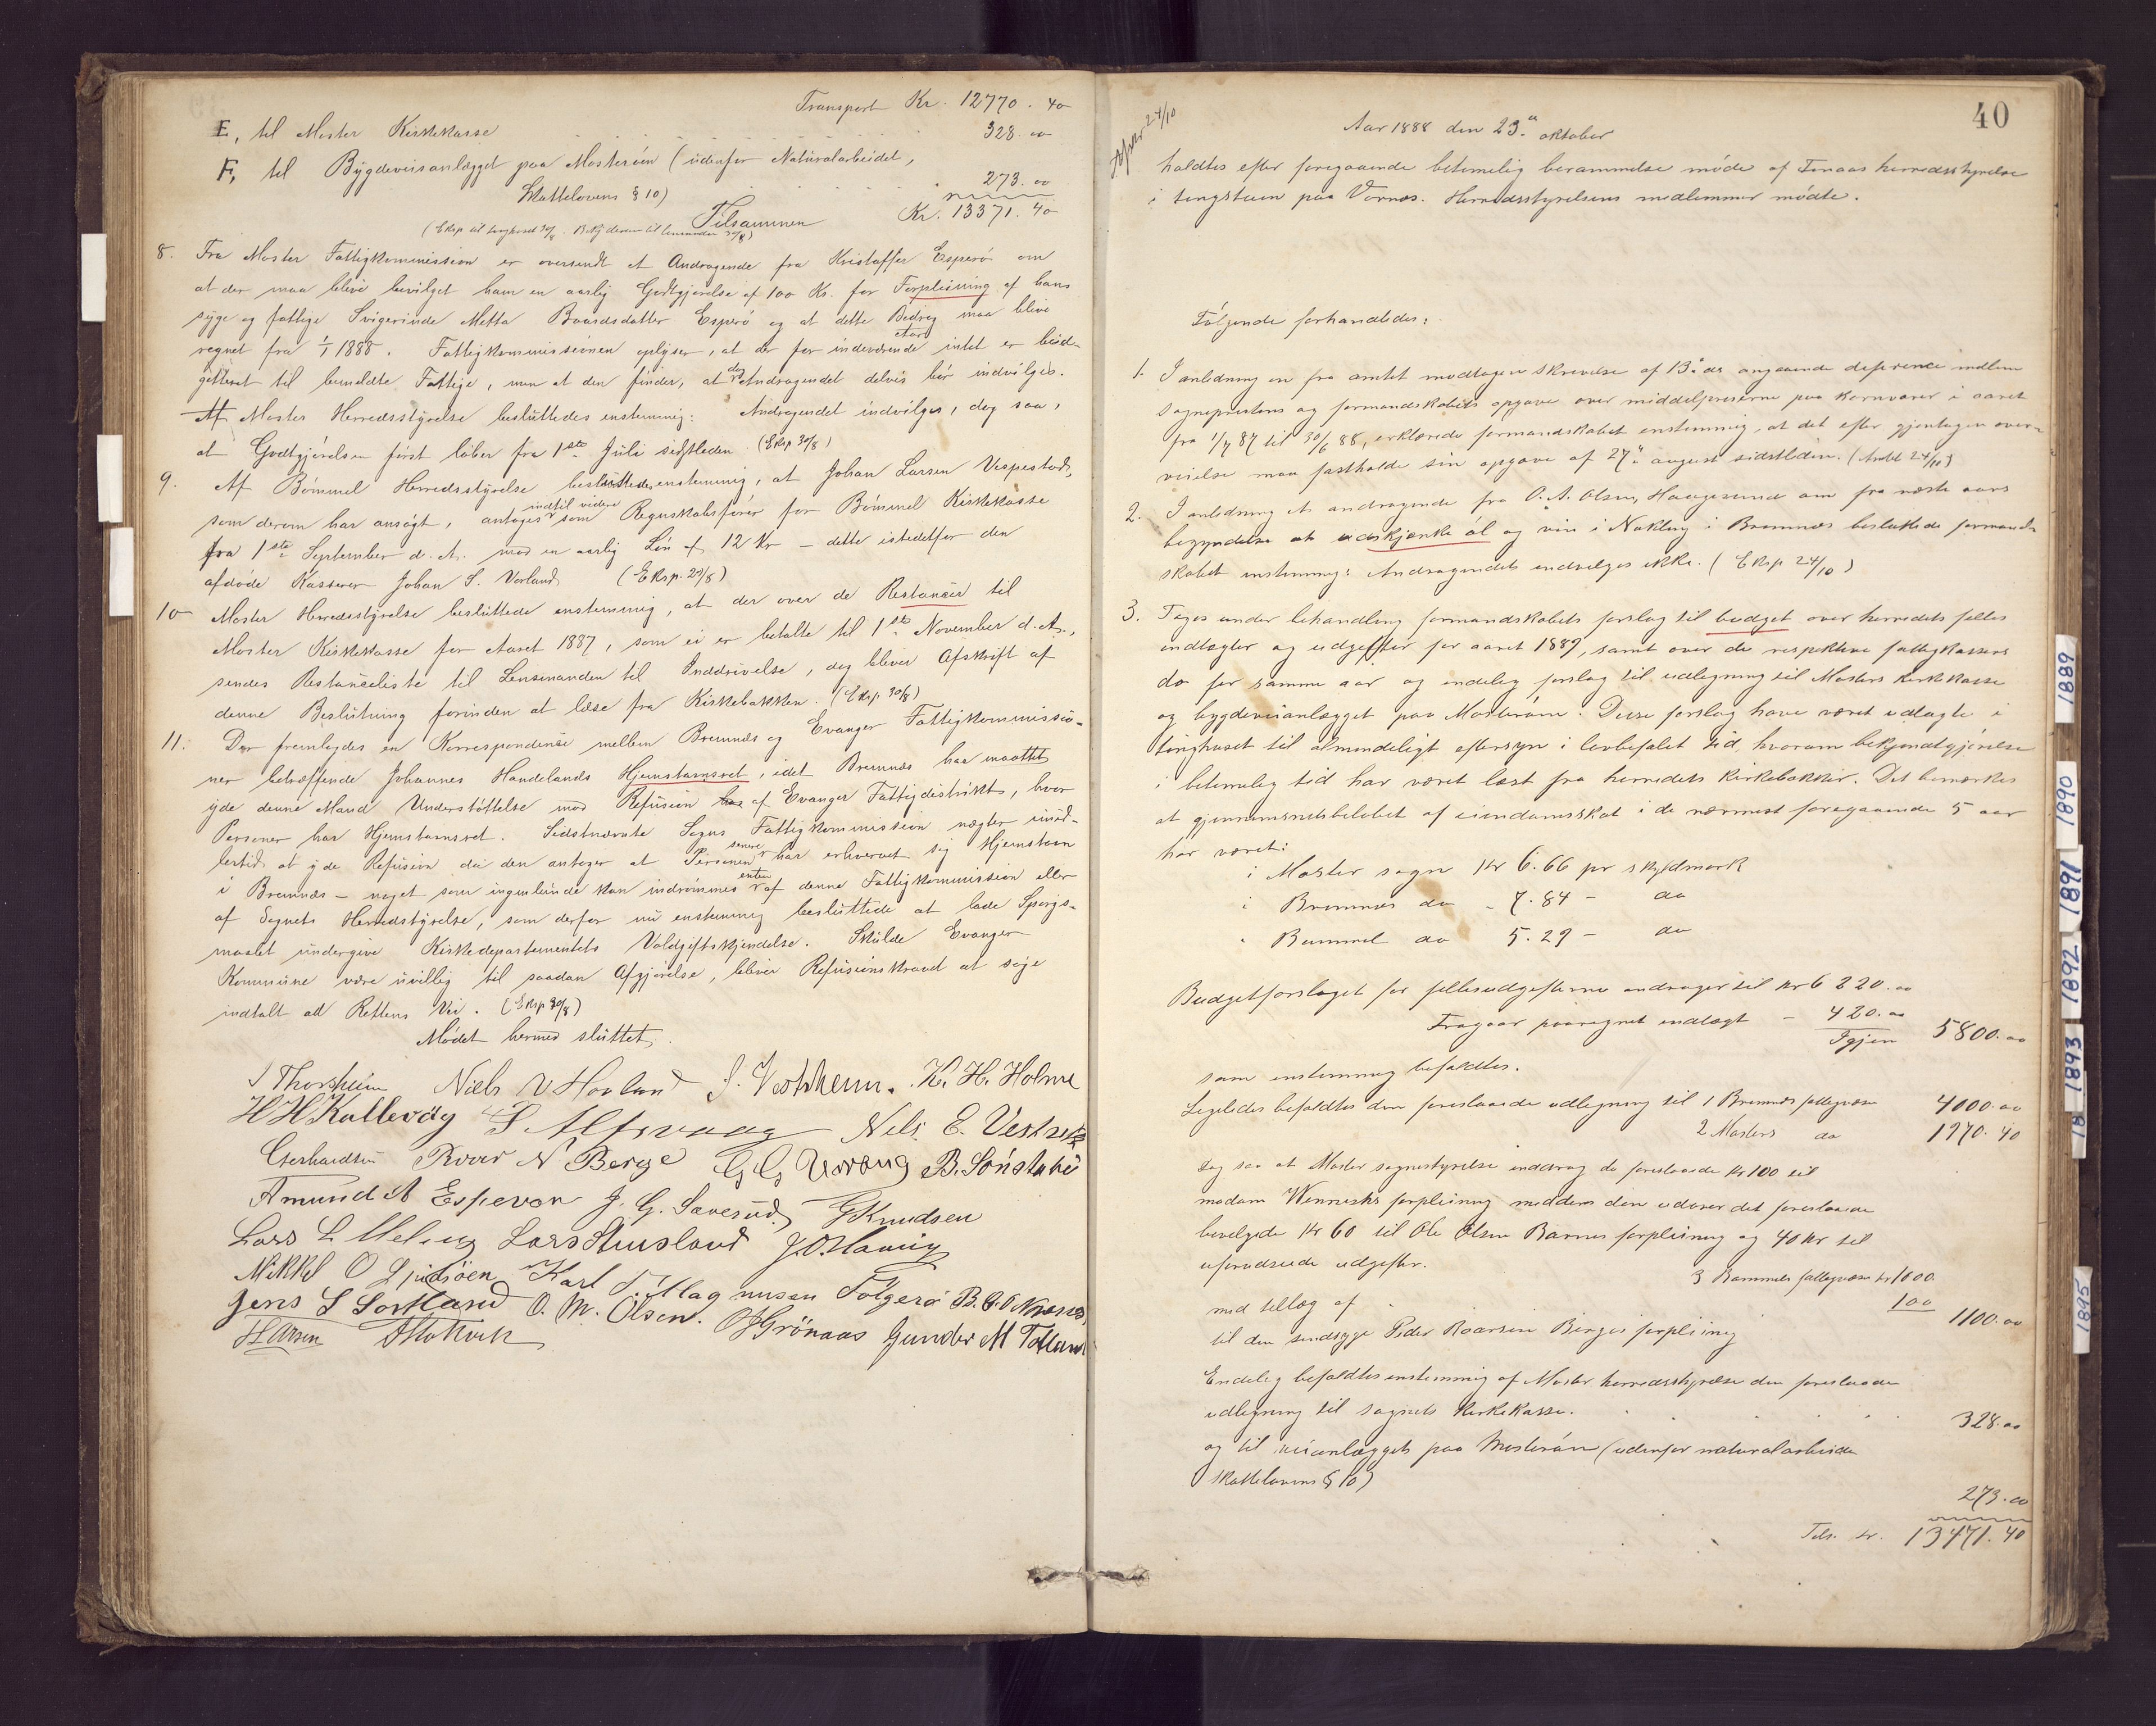 Transport Kr. 12770. 40
E, til Moster Kirkekasse 328. 00
F, til Bygdeveisanlægget paa Mosterøen (udenfor Naturalarbeidet,
Skattelovens § 10) 273. 00
Tilsammen Kr. 13371. 40
8. Fra Moster Fattigkommission er oversendt et Andragende fra Kristoffer Esperø om
at der maa blive bevilget ham en aarlig Godtgjørelse af 100 Kr. for Forpleining af hans
syge og fattige Svigerinde Metta Baardsdatter Esperø og at dette Bidrag maa blive
regnet fra 1/1 1888. Fattigkommissionen oplyser, at der for indeværende Aar intet er bud-
getteret til bemeldte Fattige, men at den finder, at dog Andragendet delvis bør indvilges.
Af Moster Herredsstyrelse besluttedes enstemmig: Andragendet indvilges, dog saa,
at Godtgjørelsen først løber fra 1ste Juli sidstleden. (Eksp 30/8)
9. Af Bømmel Herredsstyrelse besluttedes enstemmig, at Johan Larsen Vespestad,
som derom har ansøgt, antages indtil videre som Regnskabsfører for Bømmel Kirkekasse
fra 1ste September d. A. mod en aarlig Løn af 12 Kr – dette istedetfor den
afdøde Kasserer Johan S. Vorland (Eksp. 29/8)
10 Moster Herredsstyrelse besluttede enstemmig, at der over de Restancer til
Moster Kirkekasse for Aaret 1887, som ei er betalte til 1ste November d. A.,
sendes Restanceliste til Lensmanden til Inddrivelse, dog bliver Afskrift af
denne Beslutning forinden at læse fra Kirkebakken. (Eksp. 30/8)
11. Der fremlagdes en Korrespondense mellem Bremnæs og Evanger Fattigkommissio-
ner betræffende Johannes Handelands Hjemstamsret, idet Bremnæs har maattet
yde denne Mand Understøttelse mod Refusion af Evanger Fattigdistrikt, hvor
Personen har Hjemstamsret. Sidstnævnte Sogns Fattigkommission nægter imid-
lertid at yde Refusion da den antager at Personen senere har erhvervet sig Hjemstavn
i Bremnæs – noget som ingenlunde kan indrømmes enten af denne Fattigkommission eller
af Sognets Herredsstyrelse, som derfor nu enstemmig besluttede at lade Spørgs-
maalet undergive Kirkedepartementets Voldgiftskjendelse. Skulde Evanger
Kommune være uvillig til saadan Afgjørelse, bliver Refusionskravet at søge
indtalt ad Rettens Vei. (Eksp 30/8)
Mødet hermed sluttet.
J Thorsheim Niels N Hovland J. Vestrheim. K. H. Holme
H H Kallevåg S Alfsvaag Nils E. Vestre
Gerhardsen Roar N Berge G G Urrang B. Sønstabø
Amund A Espever J. G. Sævesud G Knudsen
Lars L Meling Lars Aursland J O. Havnig
Mikkel O Gjulsjøen Karl T. Magnusen Følgerø B. G. Næsse
Jens S Sortland O. M. Olsen. O Grønaas Gunder M Totland
H Larsen
40
Aar 1888 den 23de oktober
holdtes efter foregaaende betimelig berammelse møde af Finaas herredsstyrelse
i tingstuen paa Vornæs. Herredsstyrelsens medlemmer mødte.
Følgende forhandledes:
1. I anledning en fra amtet modtagen skrivelse af 13de ds angaaende deference mellem
sogneprestens og formandskabets opgave over middelpriserne paa kornvarer i aaret
fra 1/7 87 til 30/6 88, erklærede formandskabet enstemmig, at det efter gjentagen over-
veielse maa fastholde sin opgave af 27de august sidstleden. (Amtet 24/10)
2. I anledning et andragende fra O. A. Olsen, Haugesund om fra næste aars
begyndelse at udskjænke øl og vin i Nokling i Bremnæs besluttede formand-
skabet enstemmig: Andragendet indvilges ikke. (Eksp 24/10)
3. Toges under behandling formandskabets forslag til budget over herredets fælles
indtægter og udgifter for aaret 1889, samt over de respektive fattigkassers
do for samme aar og endelig forslag til udligning til Mosters kirkekasse
og bygdeveianlægget paa Mosterøen. Disse forslag have været udlagte i
tinghuset til almindeligt eftersyn i lovbefalet tid, hvorom bekjendtgjørelse
i betimelig tid har været læst fra herredets kirkebakker. Det bemærkes
at gjennemsnitsbeløbet af eiendomsskat i de nærmest foregaaende 5 aar
har været:
i Moster sogn Kr 6.66 pr skyldmark
i Bremnæs do - 7.84 - do
" Bømmel do 5.29 - do
Budgetforslaget for fællesudgifterne andrager til Kr 6 220.00
Fragaar paaregnet indtægt - 420.00
Igjen 5800.00
som enstemmig befattedes.
Ligeledes befattedes den foreslaaede udligning til 1 Bremnæs fattigvæsen 4000.00
2 Mosters do 1970. 40
dog saa at Moster sognestyrelse inddrog de foreslaaede Kr 100 til
madam Wennechs forpleining medens den udover det foreslaaede
bevilgede Kr 60 til Ole Olsen Barnes forpleining og 40 Kr til
uforudseede udgifter.
3 Bømmels fattigvæsen Kr 1000.
med tillæg af 100
1100.00
til den sindssyge Peder Roarsen Berges forpleining
Endelig befattedes enstemmig af Moster herredsstyrelse den foreslaaede
udligning til sognets kirkekasse. 328.00
og til veianlægget paa Mosterøen (udenfor naturalarbeide
skattelovens § 10)
273.00
Tils. Kr. 13471. 40
1889
1890
1891
1892
1893
18
1895